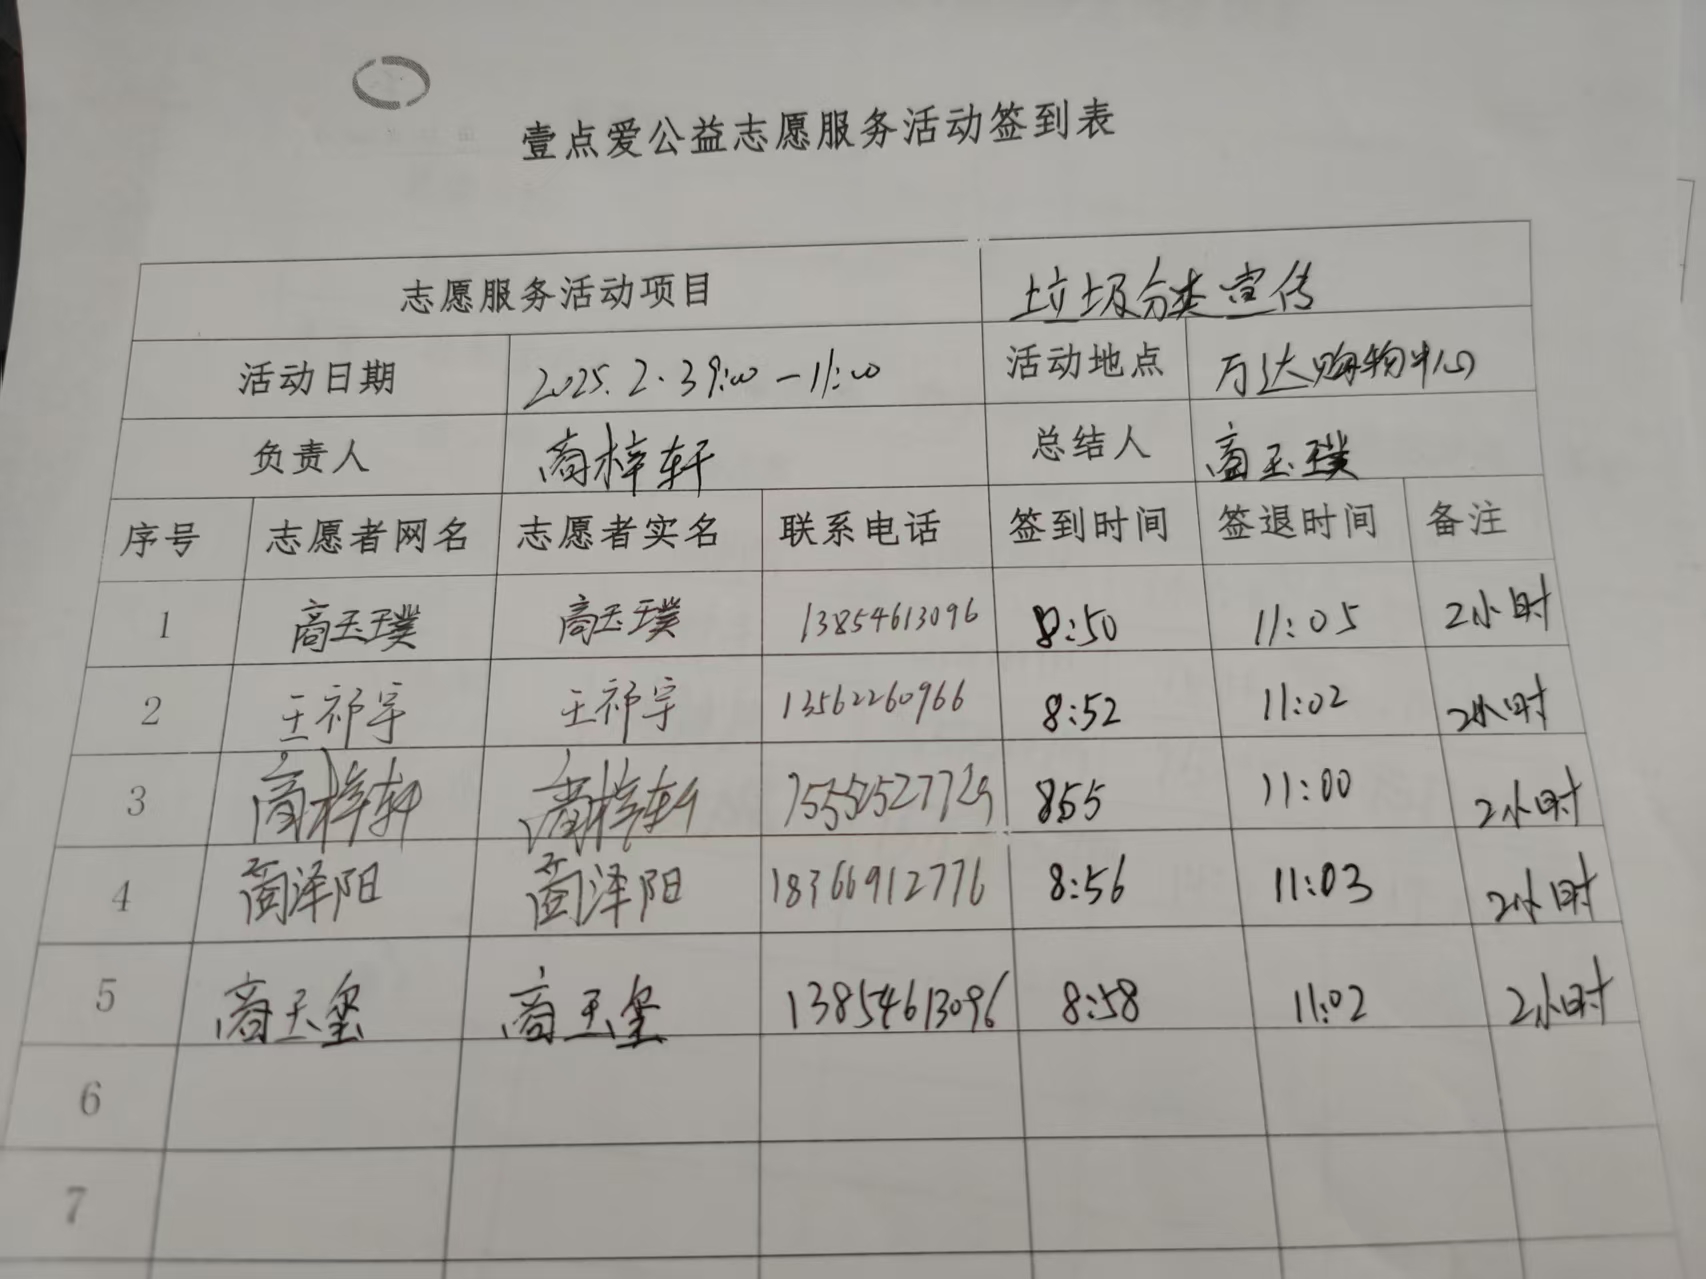 壹点爱公益志愿服务活动签到表
志愿服务活动项目 垃圾分类宣传
活动日期 2025.2.3 9:00-11:00 活动地点 万达购物中心
负责人 商梓轩 总结人 商玉璞
序号 志愿者网名 志愿者实名 联系电话 签到时间 签退时间 备注
1 商玉璞 商玉璞 13854613096 8:50 11:05 2小时
2 王祁宇 王祁宇 13562260966 8:52 11:02 2小时
3 商梓轩 商梓轩 855 11:00 2小时
4 泽阳 泽阳 18366912776 8:56 11:03 2小时
5 商玉玺 商玉玺 13854613096 8:58 11:02 2小时
6
7